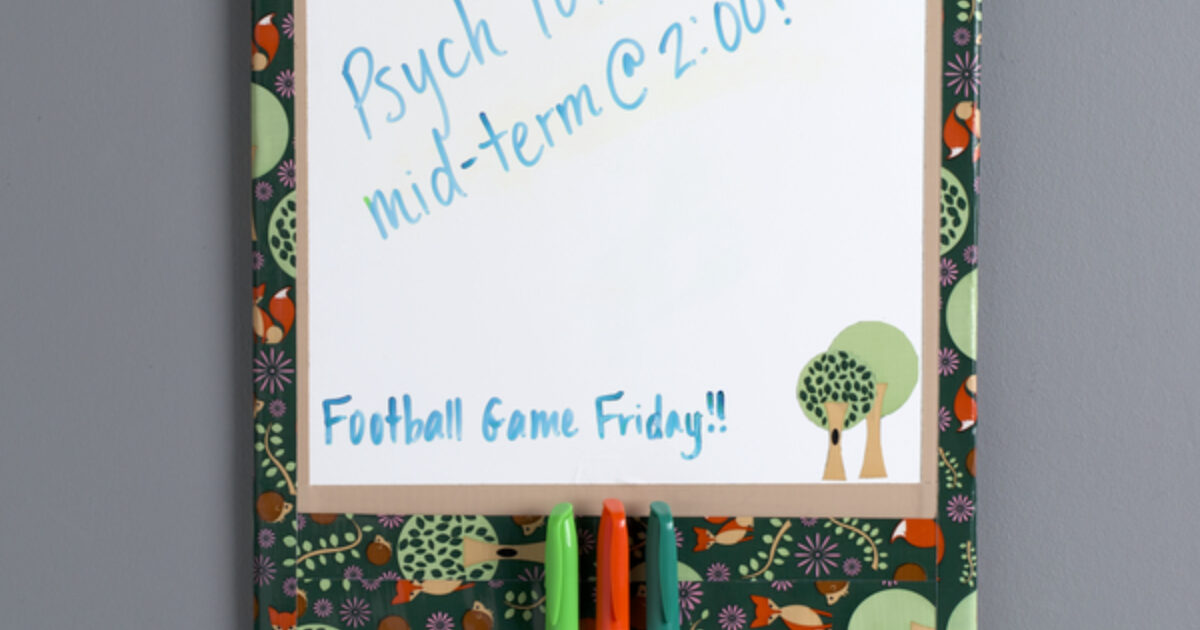 Psych
mid-term @ 2:00!
Football Game Friday!!